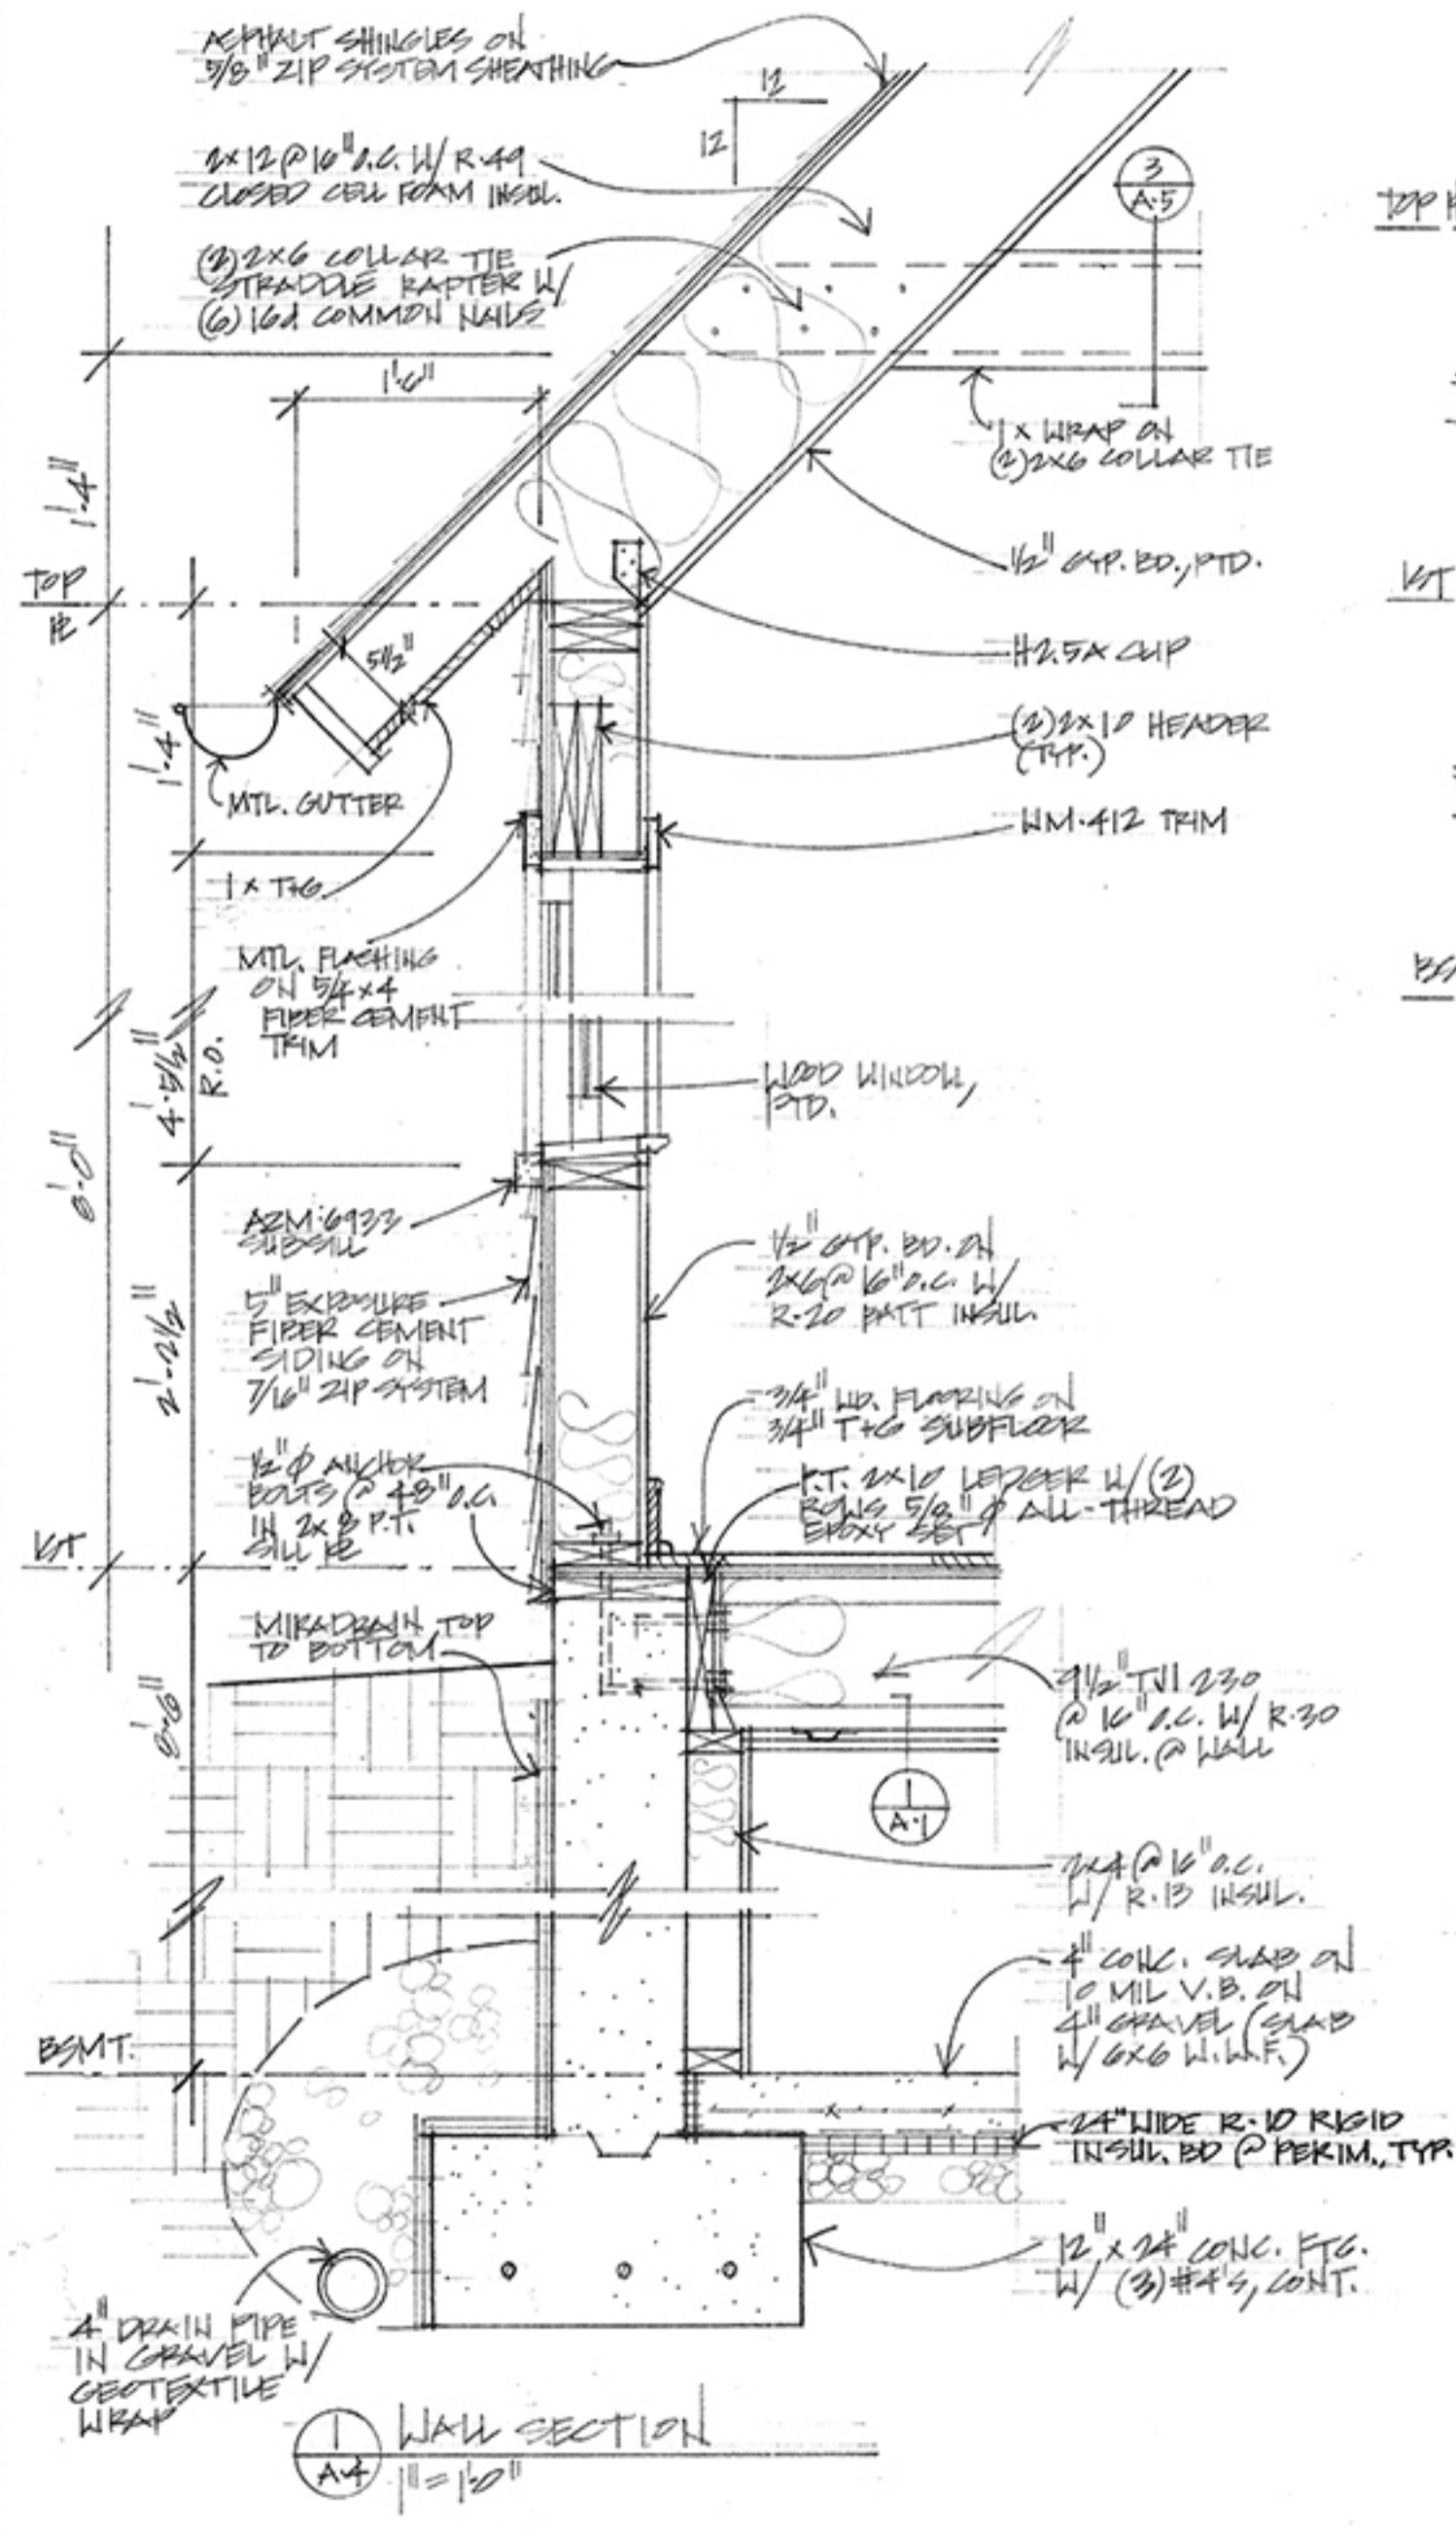 ASPHALT SHINGLES ON
5/8" ZIP SYSTEM SHEATHING
12
12
2x12 @ 16" O.C. W/ R-49
CLOSED CELL FOAM INSUL.
3
A-5
TOP
(2) 2x6 COLLAR TIE
STRADDLE RAFTER W/
(6) 16d COMMON NAILS
1'-6"
1x WRAP ON
(2) 2x6 COLLAR TIE
1'-4"
1/2" GYP. BD., PTD.
TOP
PL
1ST
5 1/2"
H2.5A CLIP
(2) 2x10 HEADER
(TYP.)
1'-4"
MTL. GUTTER
WM-412 TRIM
1x T+G
MTL. FLASHING
ON 5/4 x 4
FIBER CEMENT
TRIM
4'-5 1/2"
R.O.
WOOD WINDOW,
PTD.
8'-0"
AZM-6933
SUBSILL
1/2" GYP. BD. ON
2x6 @ 16" O.C. W/
R-20 BATT INSUL.
5" EXPOSURE
FIBER CEMENT
SIDING ON
7/16" ZIP SYSTEM
2'-2 1/2"
3/4" WD. FLOORING ON
3/4" T+G SUBFLOOR
1/2" Ø ANCHOR
BOLTS @ 48" O.C.
IN 2x8 P.T.
SILL PL
P.T. 2x10 LEDGER W/ (2)
ROWS 5/8" Ø ALL-THREAD
EPOXY SET
1ST
MIRADRAIN TOP
TO BOTTOM
9 1/2" TJI 230
@ 16" O.C. W/ R-30
INSUL. @ WALL
8'-6"
1
A-1
2x4 @ 16" O.C.
W/ R-13 INSUL.
4" CONC. SLAB ON
10 MIL V.B. ON
4" GRAVEL (SLAB
W/ 6x6 W.W.F.)
BSMT.
24" WIDE R-10 RIGID
INSUL. BD @ PERIM., TYP.
12" x 24" CONC. FTG.
W/ (3) #4'S, CONT.
4" DRAIN PIPE
IN GRAVEL W/
GEOTEXTILE
WRAP
1
A-4
WALL SECTION
1" = 1'-0"